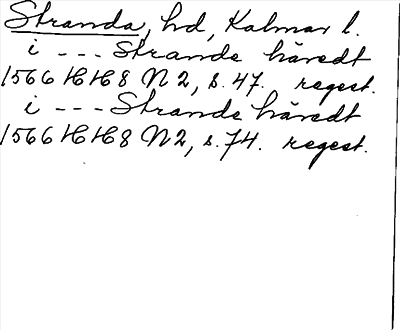 Stranda, hd, Kalmar l.
i --- Strande häredt
1566 HH8 N 2, s. 47. regest.
i --- Strande häredt
1566 HH8 N 2, s. 74. regest.